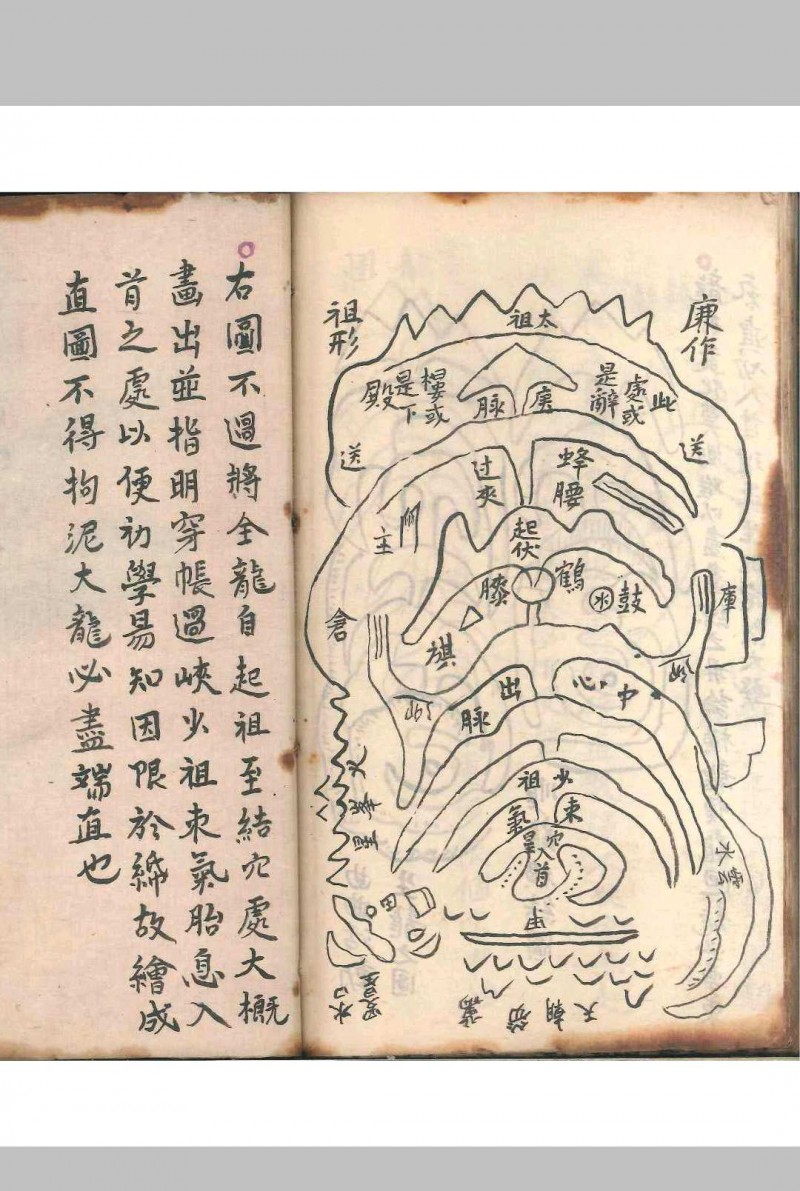 廉作
祖形
太祖
此處或是辭
樓或是下殿
送
送
庚
脉
蜂腰
过夾
起伏
鶴膝
鼓
水
旗
庫
倉
中心出脉
少祖
束氣
穴
入首
天朝
水
右圖不過將全龍自起祖至結穴處大概
畫出並指明穿帳過峽少祖束氣胎息入
首之處以便初學易知因限於紙故繪成
直圖不得拘泥大龍必盡端直也